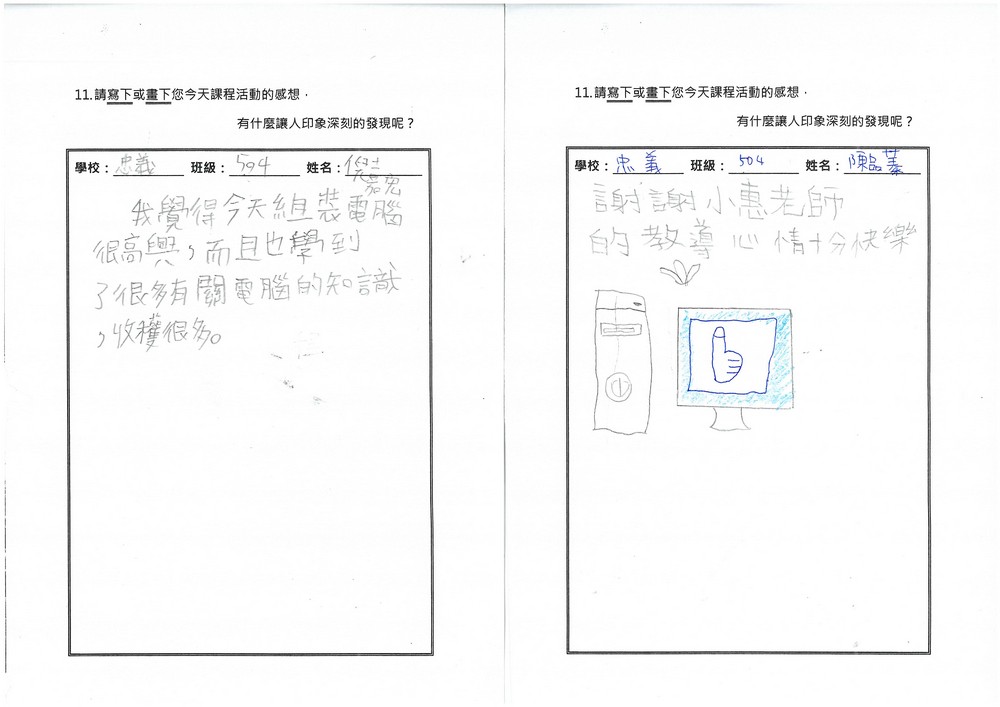 11.請寫下或畫下您今天課程活動的感想，
有什麼讓人印象深刻的發現呢？
學校：忠義 班級：504 姓名：倪
我覺得今天組裝電腦
很高興，而且也學到
了很多有關電腦的知識
，收穫很多。
11.請寫下或畫下您今天課程活動的感想，
有什麼讓人印象深刻的發現呢？
學校：忠義 班級：504 姓名：陳品蓁
謝謝小惠老師
的教導心情十分快樂